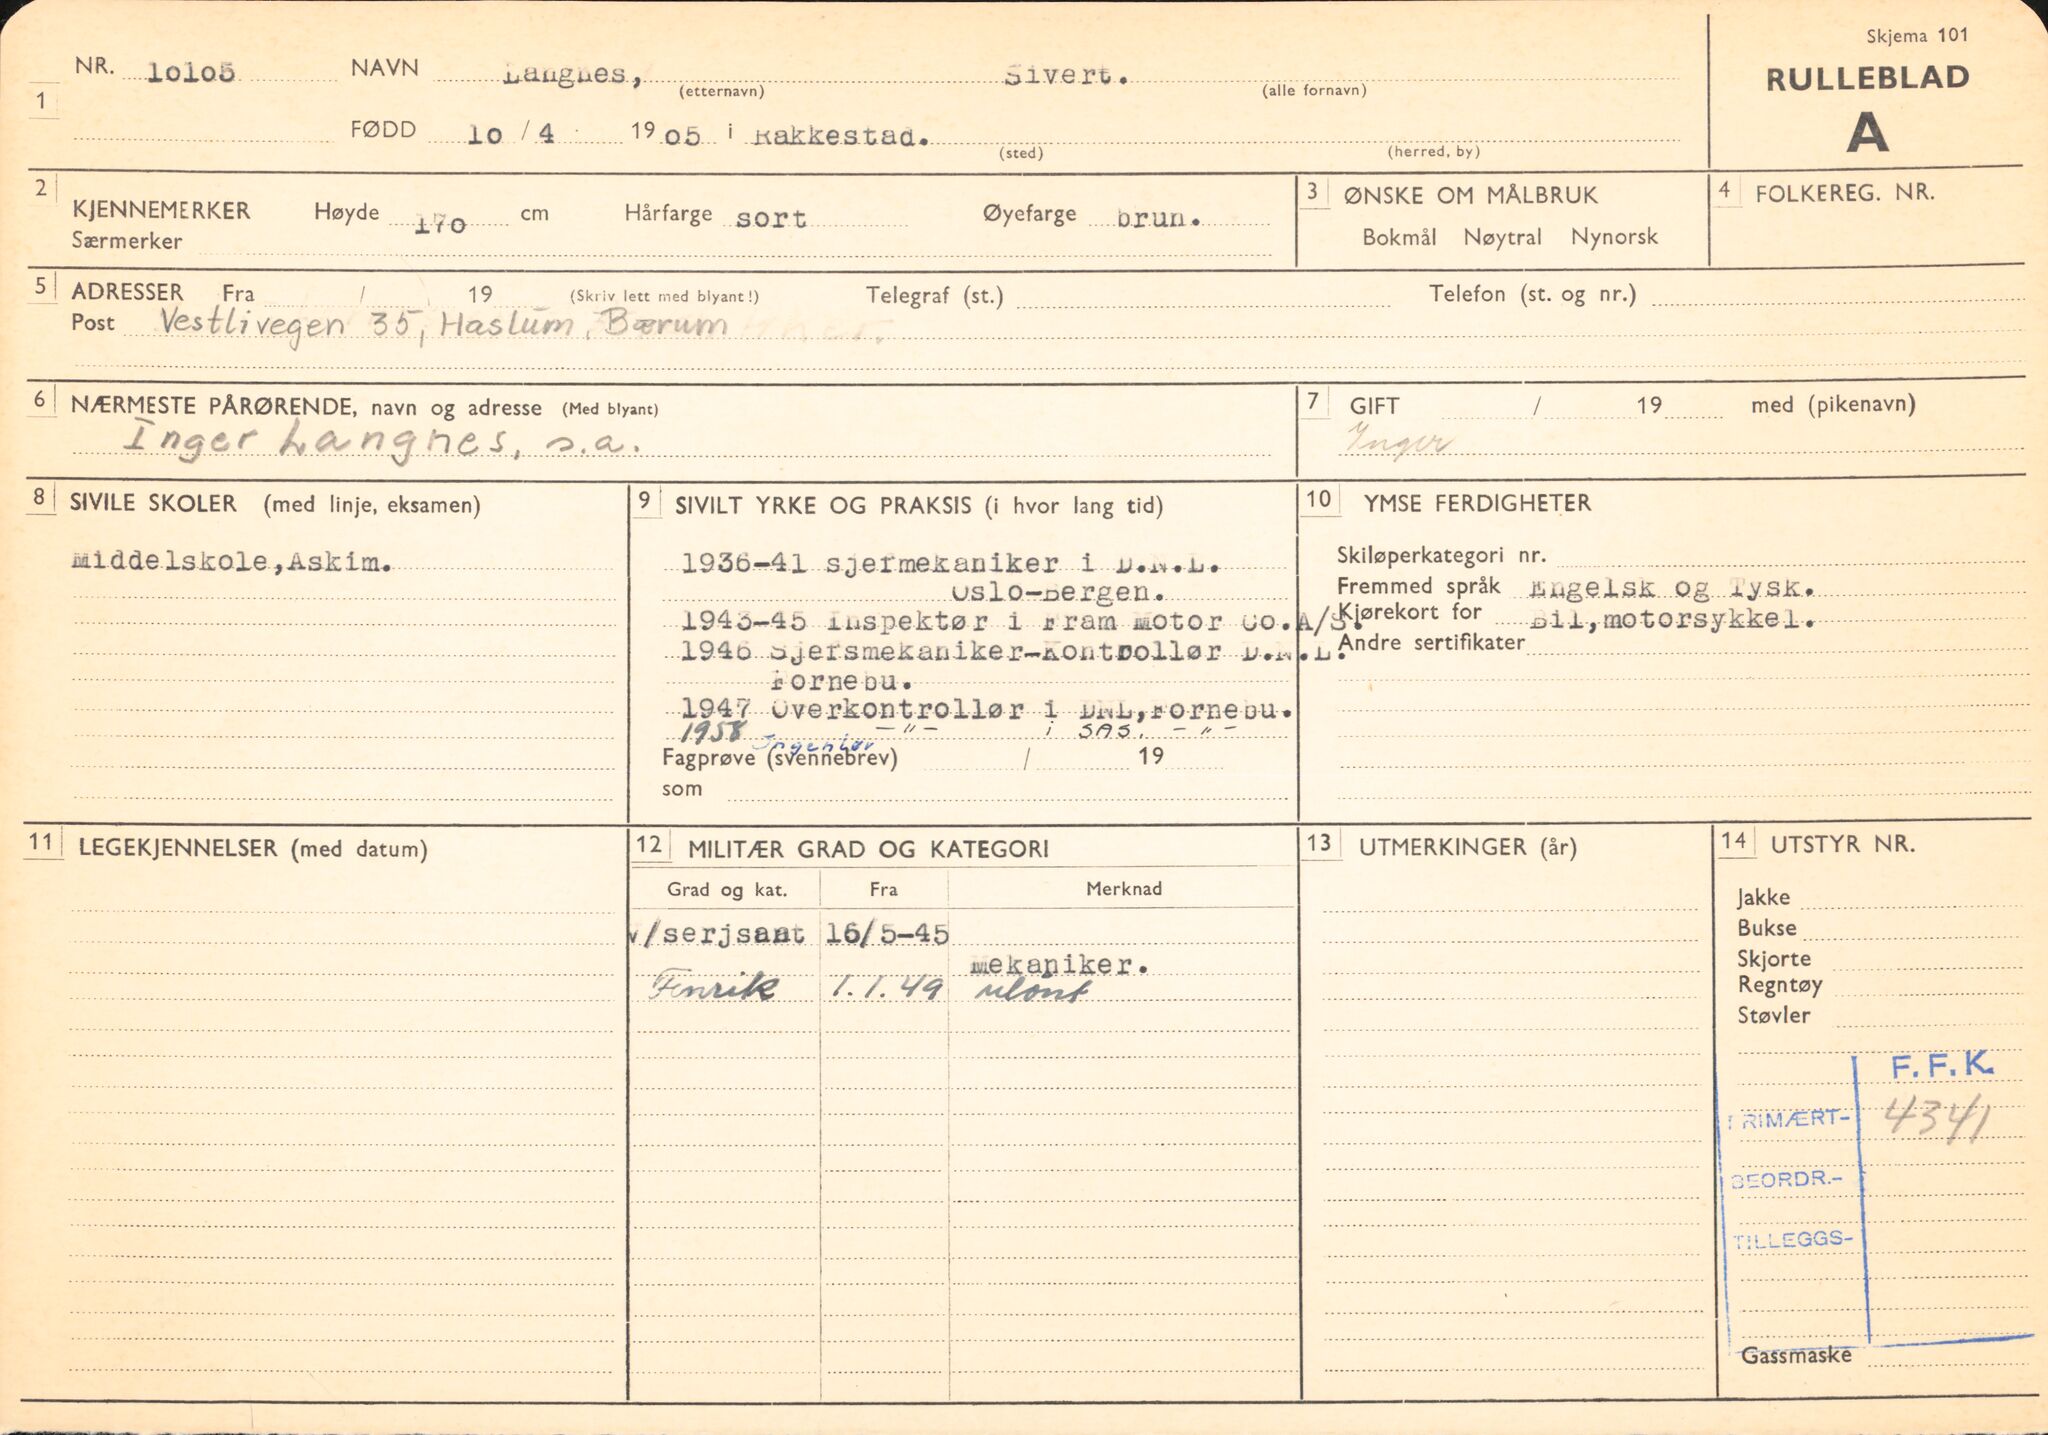 Skjema 101
RULLEBLAD
A
1
NR. 10105 NAVN Langnes, Sivert.
(etternavn) (alle fornavn)
FØDD 10 / 4 1905 i Rakkestad.
(sted) (herred, by)
2 KJENNEMERKER Høyde 170 cm Hårfarge sort Øyefarge brun.
Særmerker
3 ØNSKE OM MÅLBRUK
Bokmål Nøytral Nynorsk
4 FOLKEREG. NR.
5 ADRESSER Fra / 19 (Skriv lett med blyant!) Telegraf (st.) Telefon (st. og nr.)
Post Vestlivegen 35, Haslum, Bærum
6 NÆRMESTE PÅRØRENDE, navn og adresse (Med blyant)
Inger Langnes, s.a.
7 GIFT / 19 med (pikenavn)
Inger
8 SIVILE SKOLER (med linje, eksamen)
Middelskole,Askim.
9 SIVILT YRKE OG PRAKSIS (i hvor lang tid)
1936-41 sjefmekaniker i D.N.L.
Oslo-Bergen.
1943-45 Inspektør i Fram Motor Co.A/S.
1946 Sjefsmekaniker-Kontrollør D.N.L.
Fornebu.
1947 Overkontrollør i DNL,Fornebu.
1958 -"- i SAS. -"-
Ingeniør
Fagprøve (svennebrev) / 19
som
10 YMSE FERDIGHETER
Skiløperkategori nr.
Fremmed språk Engelsk og Tysk.
Kjørekort for Bil,motorsykkel.
Andre sertifikater
11 LEGEKJENNELSER (med datum)
12 MILITÆR GRAD OG KATEGORI
Grad og kat. Fra Merknad
V/serjsant 16/5-45
Mekaniker.
Fenrik 1.1.49
13 UTMERKINGER (år)
14 UTSTYR NR.
Jakke
Bukse
Skjorte
Regntøy
Støvler
F.F.K.
PRIMÆRT- 4341
BEORDR.-
TILLEGGS-
Gassmaske